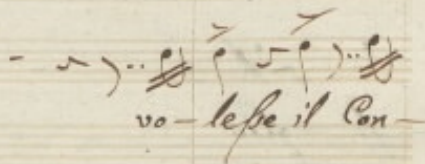 vo-leſse il Con-